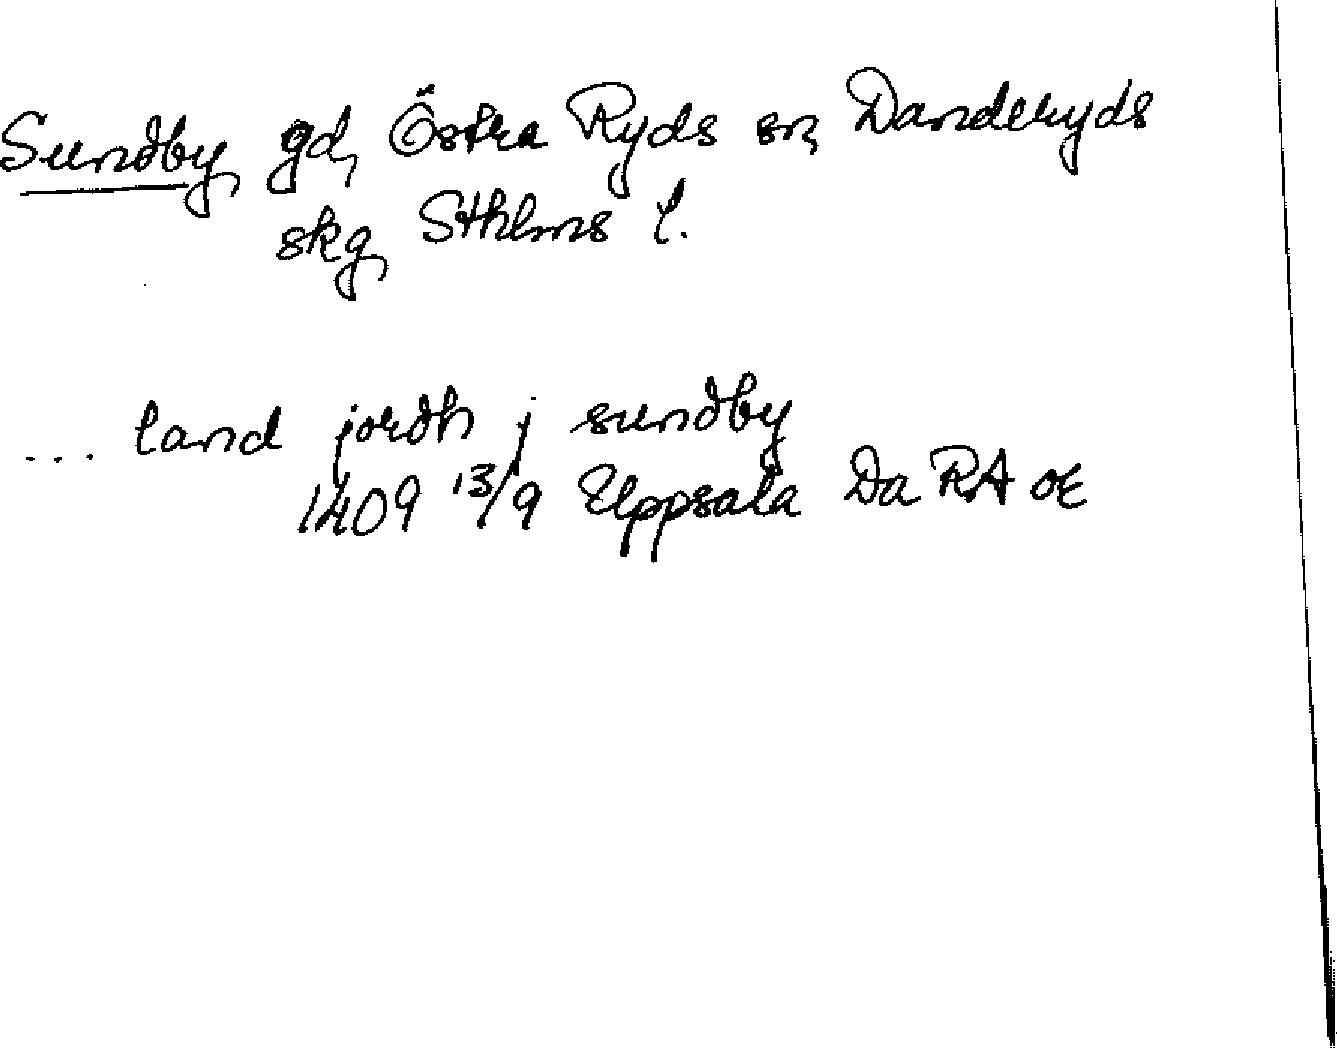 Sundby, gd, Östra Ryds sn, Danderyds
skg, Sthlms l.
... land jordh j sundby
1409 13/9 Uppsala Da RA or